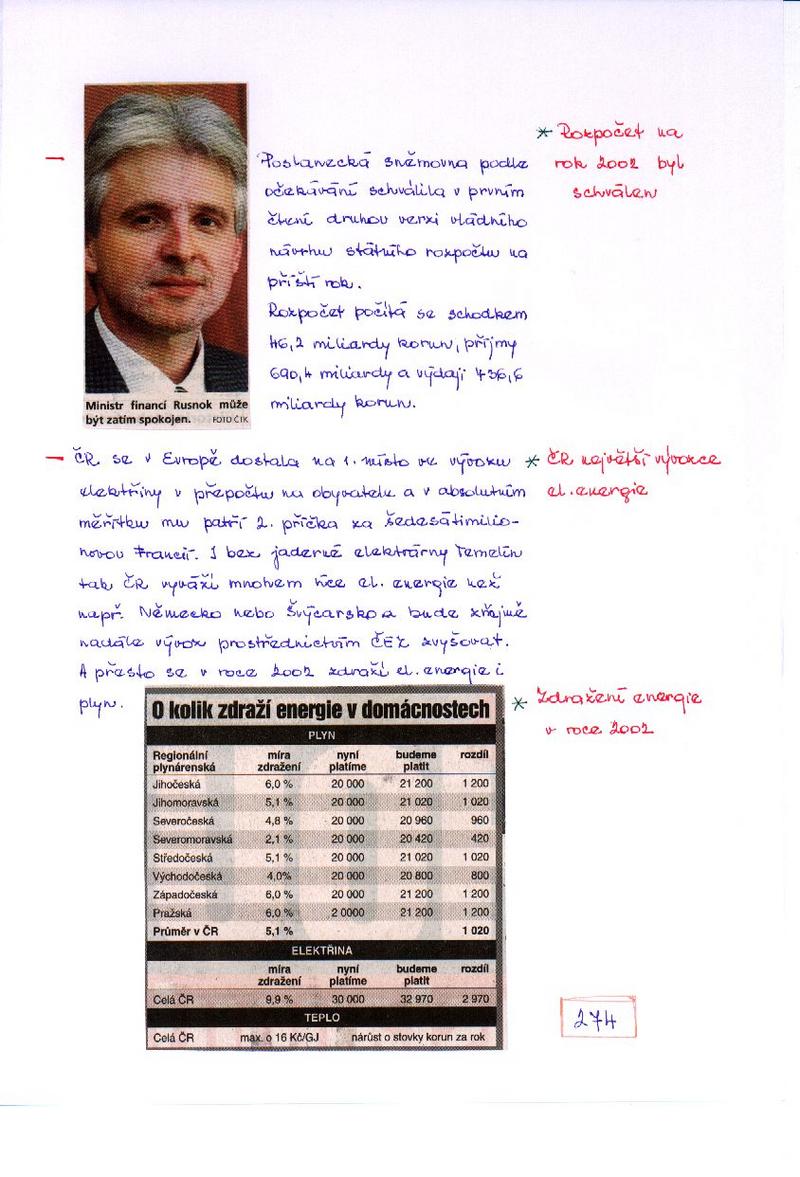 Poslanecká sněmovna podle
očekávání schválila v prvním
čtení druhou verzi vládního
návrhu státního rozpočtu na
příští rok.
Rozpočet počítá se schodkem
46,2 miliardy korun, příjmy
690,4 miliardy a výdaji 736,6
miliardy korun.
* Rozpočet na
rok 2002 byl
schválen
Ministr financí Rusnok může
být zatím spokojen. FOTO ČTK
ČR se v Evropě dostala na 1. místo ve vývozu
elektřiny v přepočtu na obyvatele a v absolutním
měřítku mu patří 2. příčka za šedesátimilio-
novou Francií. I bez jaderné elektrárny Temelín
tak ČR vyváží mnohem více el. energie než
např. Německo nebo Švýcarsko a bude zřejmě
nadále vývoz prostřednictvím ČEZ zvyšovat.
A přesto se v roce 2002 zdraží el. energie i
plyn.
* ČR největší vývozce
el. energie
* Zdražení energie
v roce 2002
O kolik zdraží energie v domácnostech
PLYN
Regionální míra nyní budeme rozdíl
plynárenská zdražení platíme platit
Jihočeská 6,0 % 20 000 21 200 1 200
Jihomoravská 5,1 % 20 000 21 020 1 020
Severočeská 4,8 % 20 000 20 960 960
Severomoravská 2,1 % 20 000 20 420 420
Středočeská 5,1 % 20 000 21 020 1 020
Východočeská 4,0% 20 000 20 800 800
Západočeská 6,0 % 20 000 21 200 1 200
Pražská 6,0 % 2 0000 21 200 1 200
Průměr v ČR 5,1 % 1 020
ELEKTŘINA
míra nyní budeme rozdíl
zdražení platíme platit
Celá ČR 9,9 % 30 000 32 970 2 970
TEPLO
Celá ČR max. o 16 Kč/GJ nárůst o stovky korun za rok
274